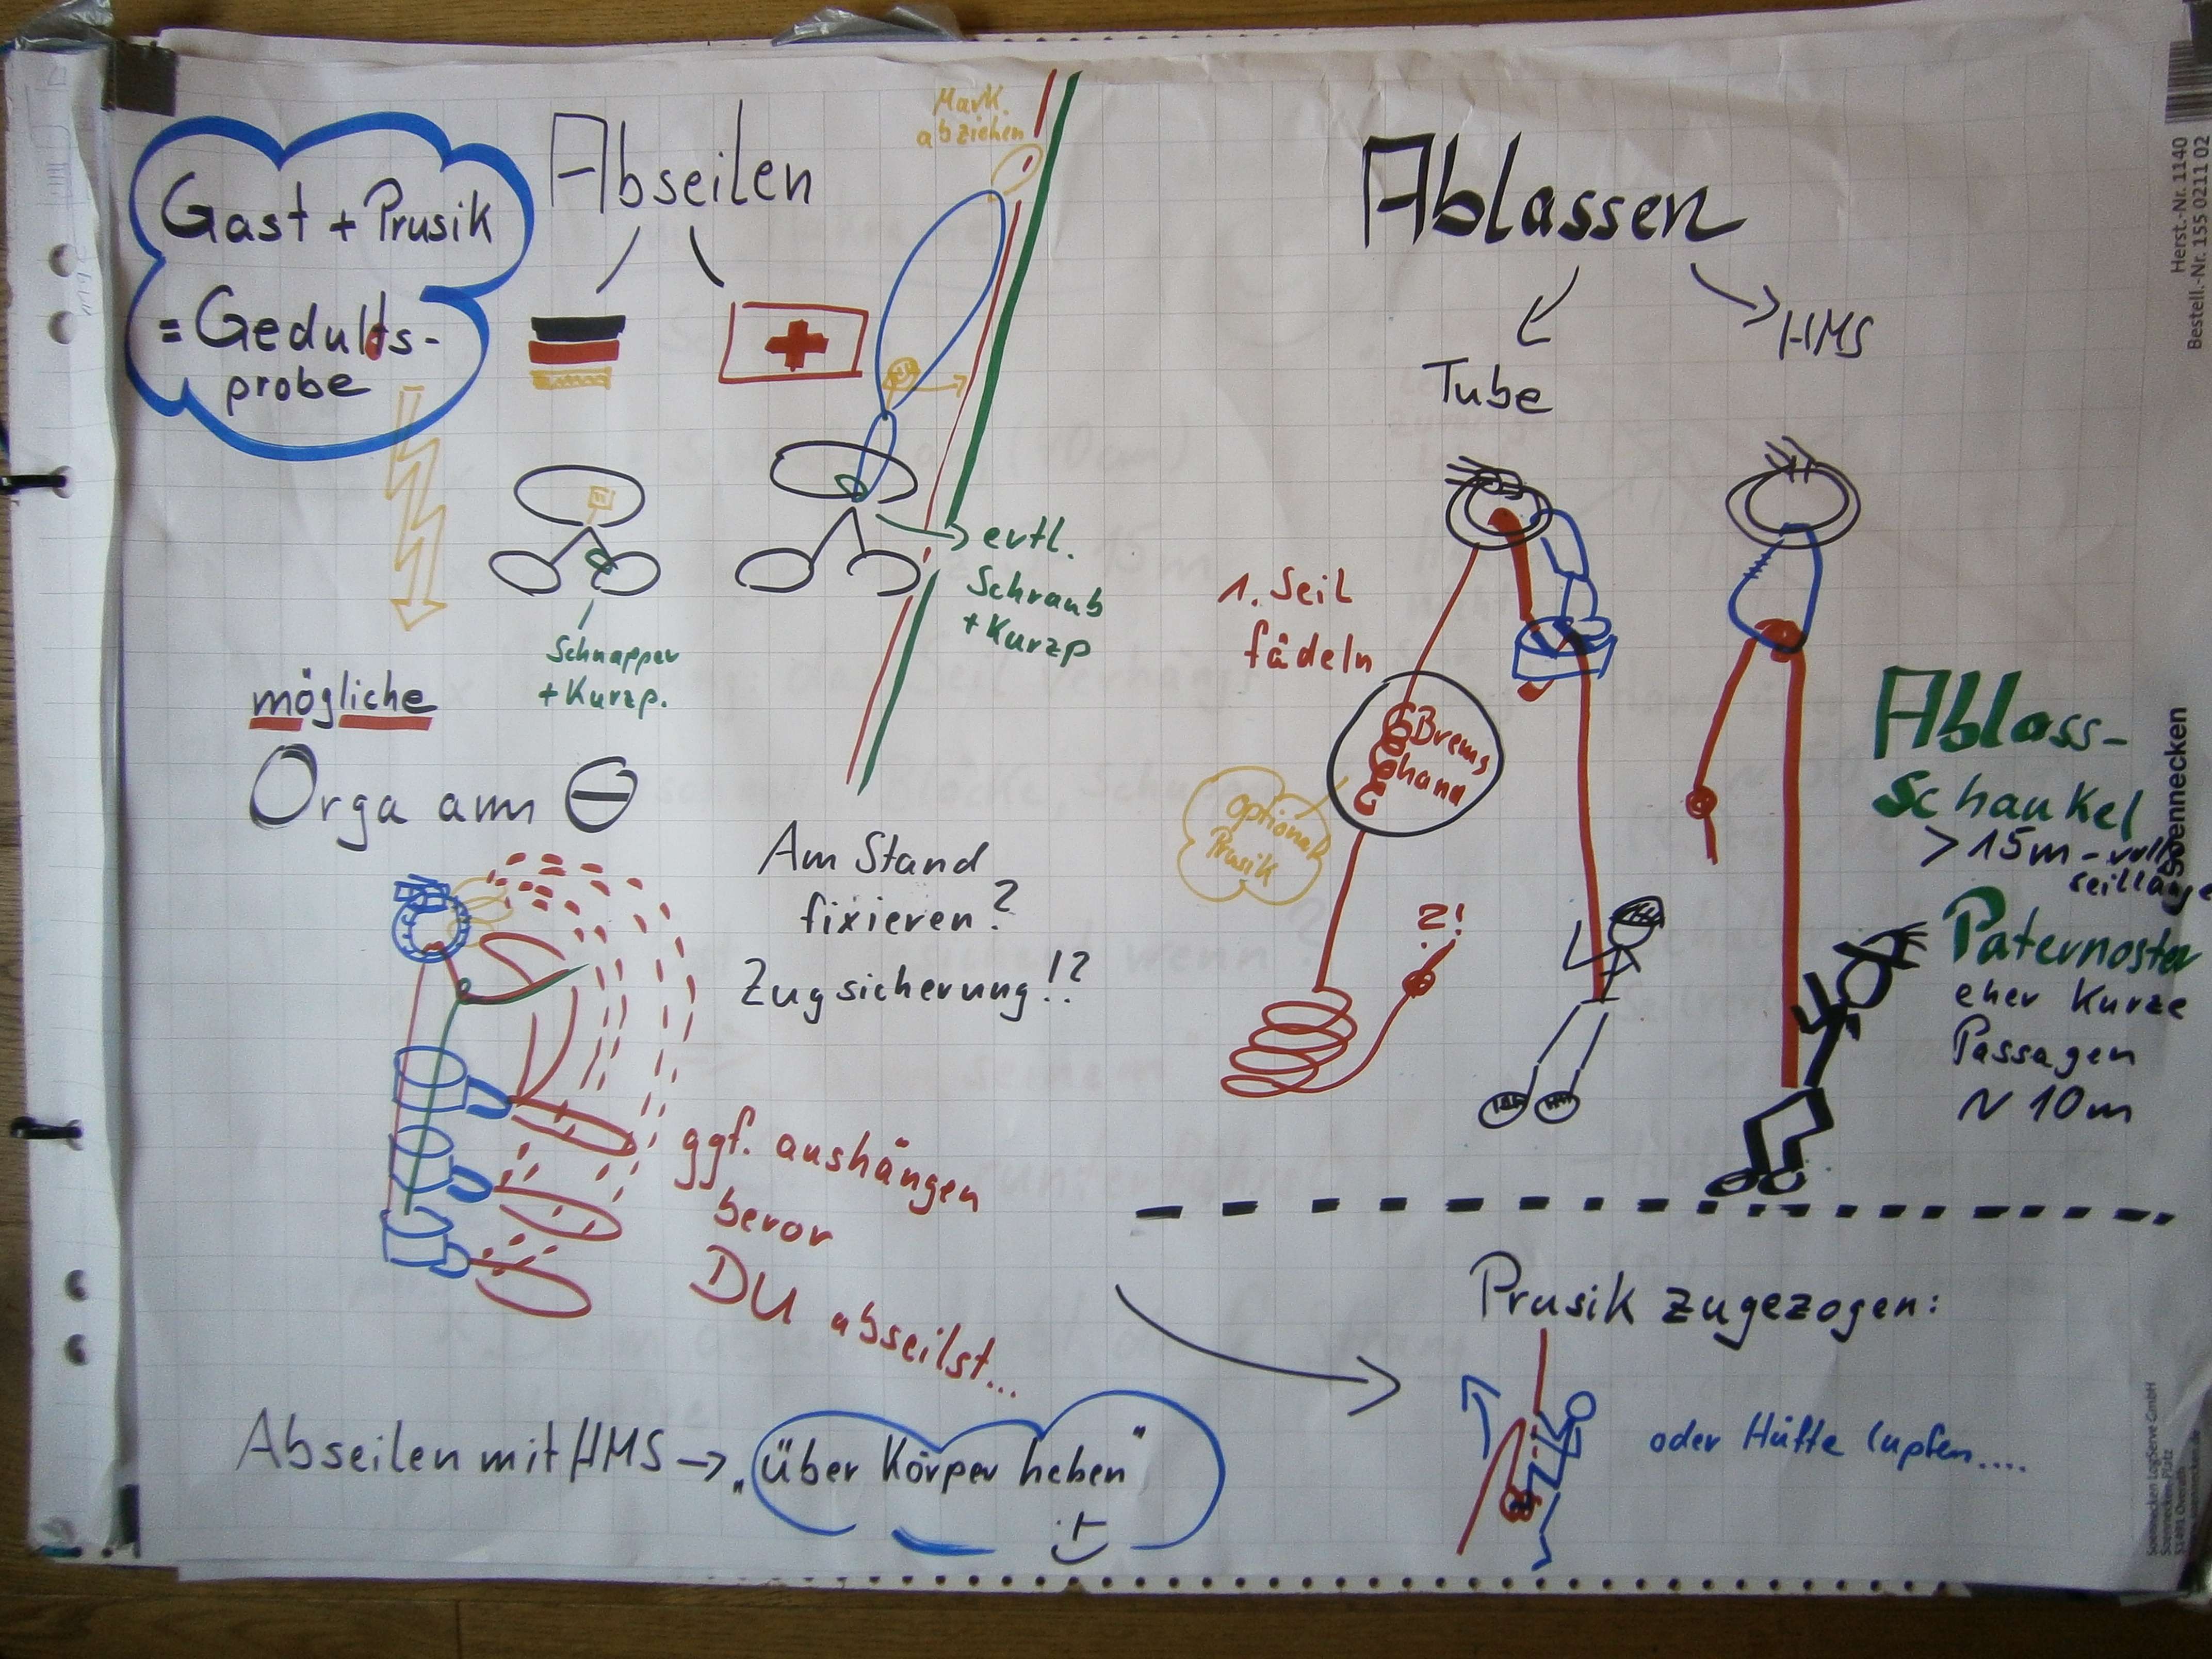 Gast + Prusik
= Gedults-
probe
Abseilen
Mark.
abziehen
Schnapper
+ Kurzp.
evtl.
Schraub
+ Kurzp
mögliche
Orga am
Am Stand
fixieren?
Zugsicherung!?
ggf. aushängen
bevor
DU abseilst...
Abseilen mit HMS → "über Körper heben"
Ablassen
Tube
HMS
1. Seil
fädeln
Brems
hand
optional
Prusik
?!
Ablass-
Schaukel
> 15m - volle
seillänge
Paternoster
eher Kurze
Passagen
~ 10m
Prusik zugezogen:
oder Hüfte lupfen....
Herst.-Nr. 1140
Bestell.-Nr. 155 021102
Soennecken
Soennecken LogServe GmbH
Soennecken-Platz
51491 Overath